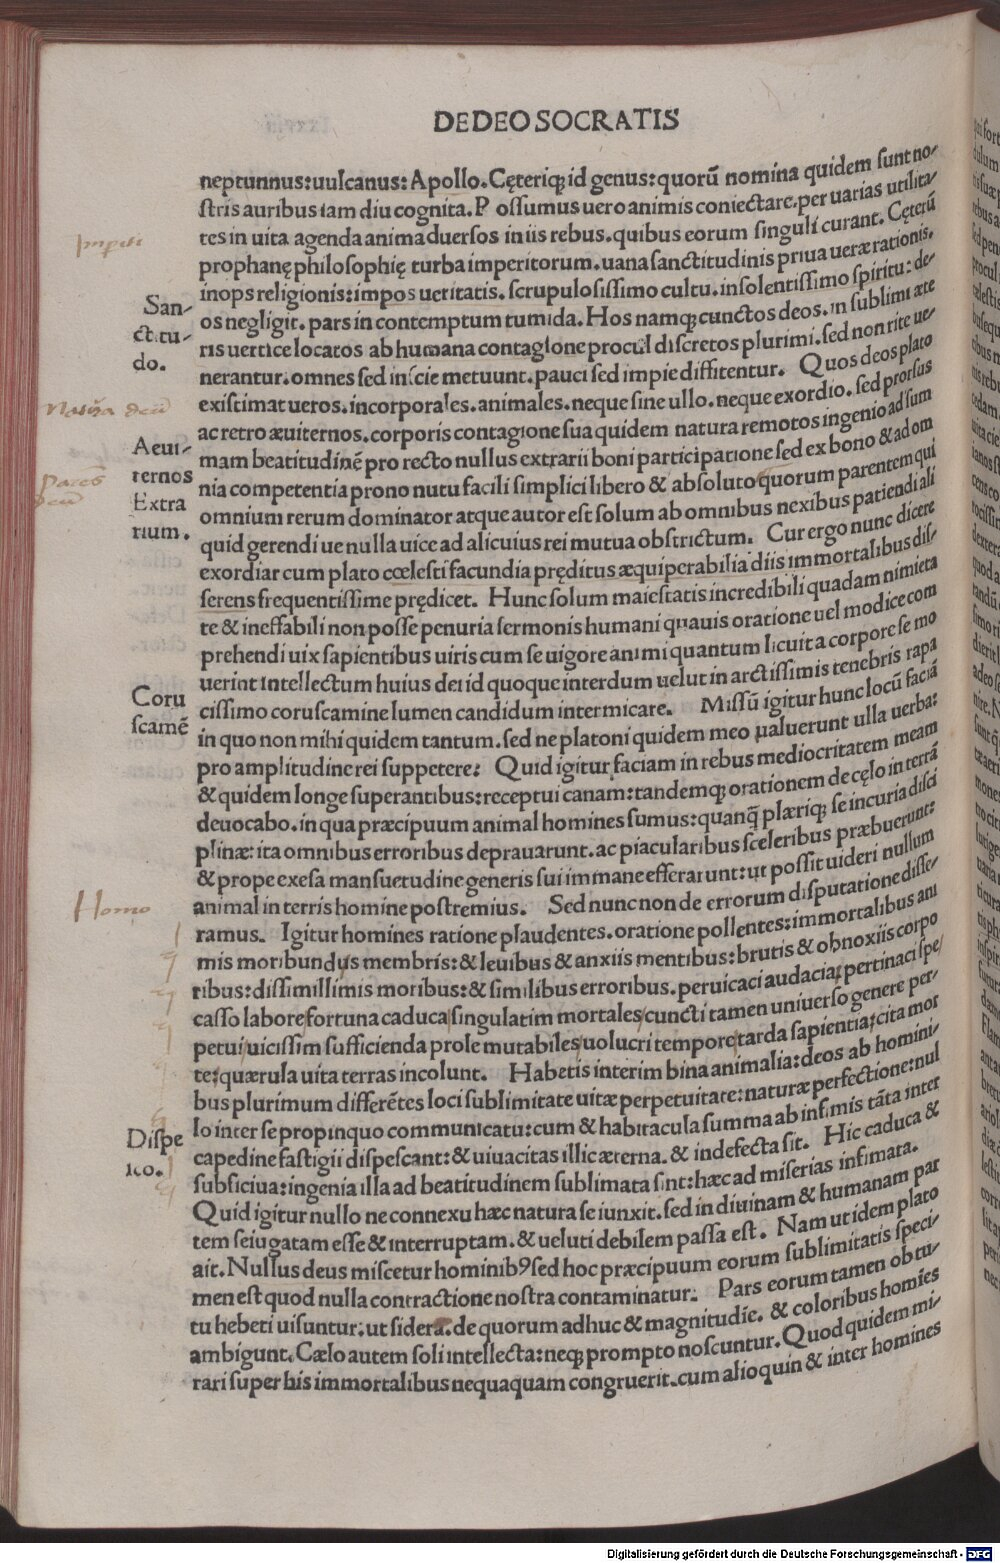 DE DEO SOCRATIS
neptunnus:uulcanus:Apollo.Cęteriq; id genus:quorū nomina quidem sunt no-
stris auribus iam diu cognita.Possumus uero animis coniectare.per uarias utilita-
tes in uita agenda anima duersos in iis rebus.quibus eorum singuli curant. Cęterū
prophanę philosophię turba imperitorum.uana sanctitudinis priua ueræ rationis.
inops religionis:impos ueritatis.scrupulosissimo cultu.insolentissimo spiritu:de-
os negligit.pars in contemptum tumida.Hos namq; cunctos deos.in sublimi æte
ris uertice locatos ab humana contagione procul discretos plurimi.sed non rite ue-
nerantur.omnes sed inscie metuunt.pauci sed impie diffitentur. Quos deos plato
existimat ueros.incorporales.animales.neque sine ullo.neque exordio.sed prorsus
ac retro æuiternos.corporis contagione sua quidem natura remotos ingenio ad sum
mam beatitudinē pro recto nullus extrarii boni participatione sed ex bono & ad om
nia competentia prono nutu facili simplici libero & absoluto quorum parentem qui
omnium rerum dominator atque autor est solum ab omnibus nexibus patiendi ali
quid gerendi ue nulla uice ad alicuius rei mutua obstrictum. Cur ergo nunc dicere
exordiar cum plato cœlesti facundia pręditus æquiperabilia diis immortalibus dis-
serens frequentissime prędicet. Hunc solum maiestatis incredibili quadam nimieta
te & ineffabili non posse penuria sermonis humani quauis oratione uel modice com
prehendi uix sapientibus uiris cum se uigore animi quantum licuit a corpore se mo
uerint intellectum huius dei id quoque interdum uelut in arctissimis tenebris rapa
cissimo coruscamine lumen candidum intermicare. Missū igitur hunc locū faciā
in quo non mihi quidem tantum.sed ne platoni quidem meo ualuerunt ulla uerba:
pro amplitudine rei suppetere: Quid igitur faciam in rebus mediocritatem meam
& quidem longe superantibus:receptui canam:tandemq; orationem de cęlo in terrā
deuocabo.in qua præcipuum animal homines sumus:quanq̄ plæriq; se incuria disci
plinæ:ita omnibus erroribus deprauarunt.ac piacularibus sceleribus præbuerunt:
& prope exesa mansuetudine generis sui immane efferarunt:ut possit uideri nullum
animal in terris homine postremius. Sed nunc non de errorum disputatione disse-
ramus. Igitur homines ratione plaudentes.oratione pollentes:immortalibus ani
mis moribundus membris:& leuibus & anxiis mentibus:brutis & obnoxiis corpo
ribus:dissimillimis moribus:& similibus erroribus.peruicaci audacia:pertinaci spe
casso labore fortuna caduca singulatim mortales cuncti tamen uniuerso genere per-
petui uicissim sufficienda prole mutabiles uolucri tempore tarda sapientia:cita mor
te:quærula uita terras incolunt. Habetis interim bina animalia:deos ab homini-
bus plurimum differētes loci sublimitate uitæ perpetuitate:naturæ perfectione:nul
lo inter se propinquo communicatu:cum & habitacula summa ab infimis tāta inter
capedine fastigii dispescant:& uiuacitas illic æterna.& indefecta sit. Hic caduca &
subsiciua:ingenia illa ad beatitudinem sublimata sint:hæc ad miserias infimata.
Quid igitur nullo ne connexu hæc natura se iunxit.sed in diuinam & humanam par
tem seiugatam esse & interruptam.& ueluti debilem passa est. Nam ut idem plato
ait.Nullus deus miscetur hominib9 sed hoc præcipuum eorum sublimitatis speci-
men est quod nulla contractione nostra contaminatur. Pars eorum tamen obtu-
tu hebeti uisuntur.ut sidera.de quorum adhuc & magnitudīe.& coloribus homīes
ambigunt.Cælo autem soli intellecta:neq; prompto noscuntur.Quod quidem mi-
rari super his immortalibus nequaquam congruerit.cum alioquin & inter homines
San-
ctitu-
do.
Aeui-
ternos
Extra
rium.
Coru
scamē
Dispe
sco.
Homo
Digitalisierung gefördert durch die Deutsche Forschungsgemeinschaft - DFG